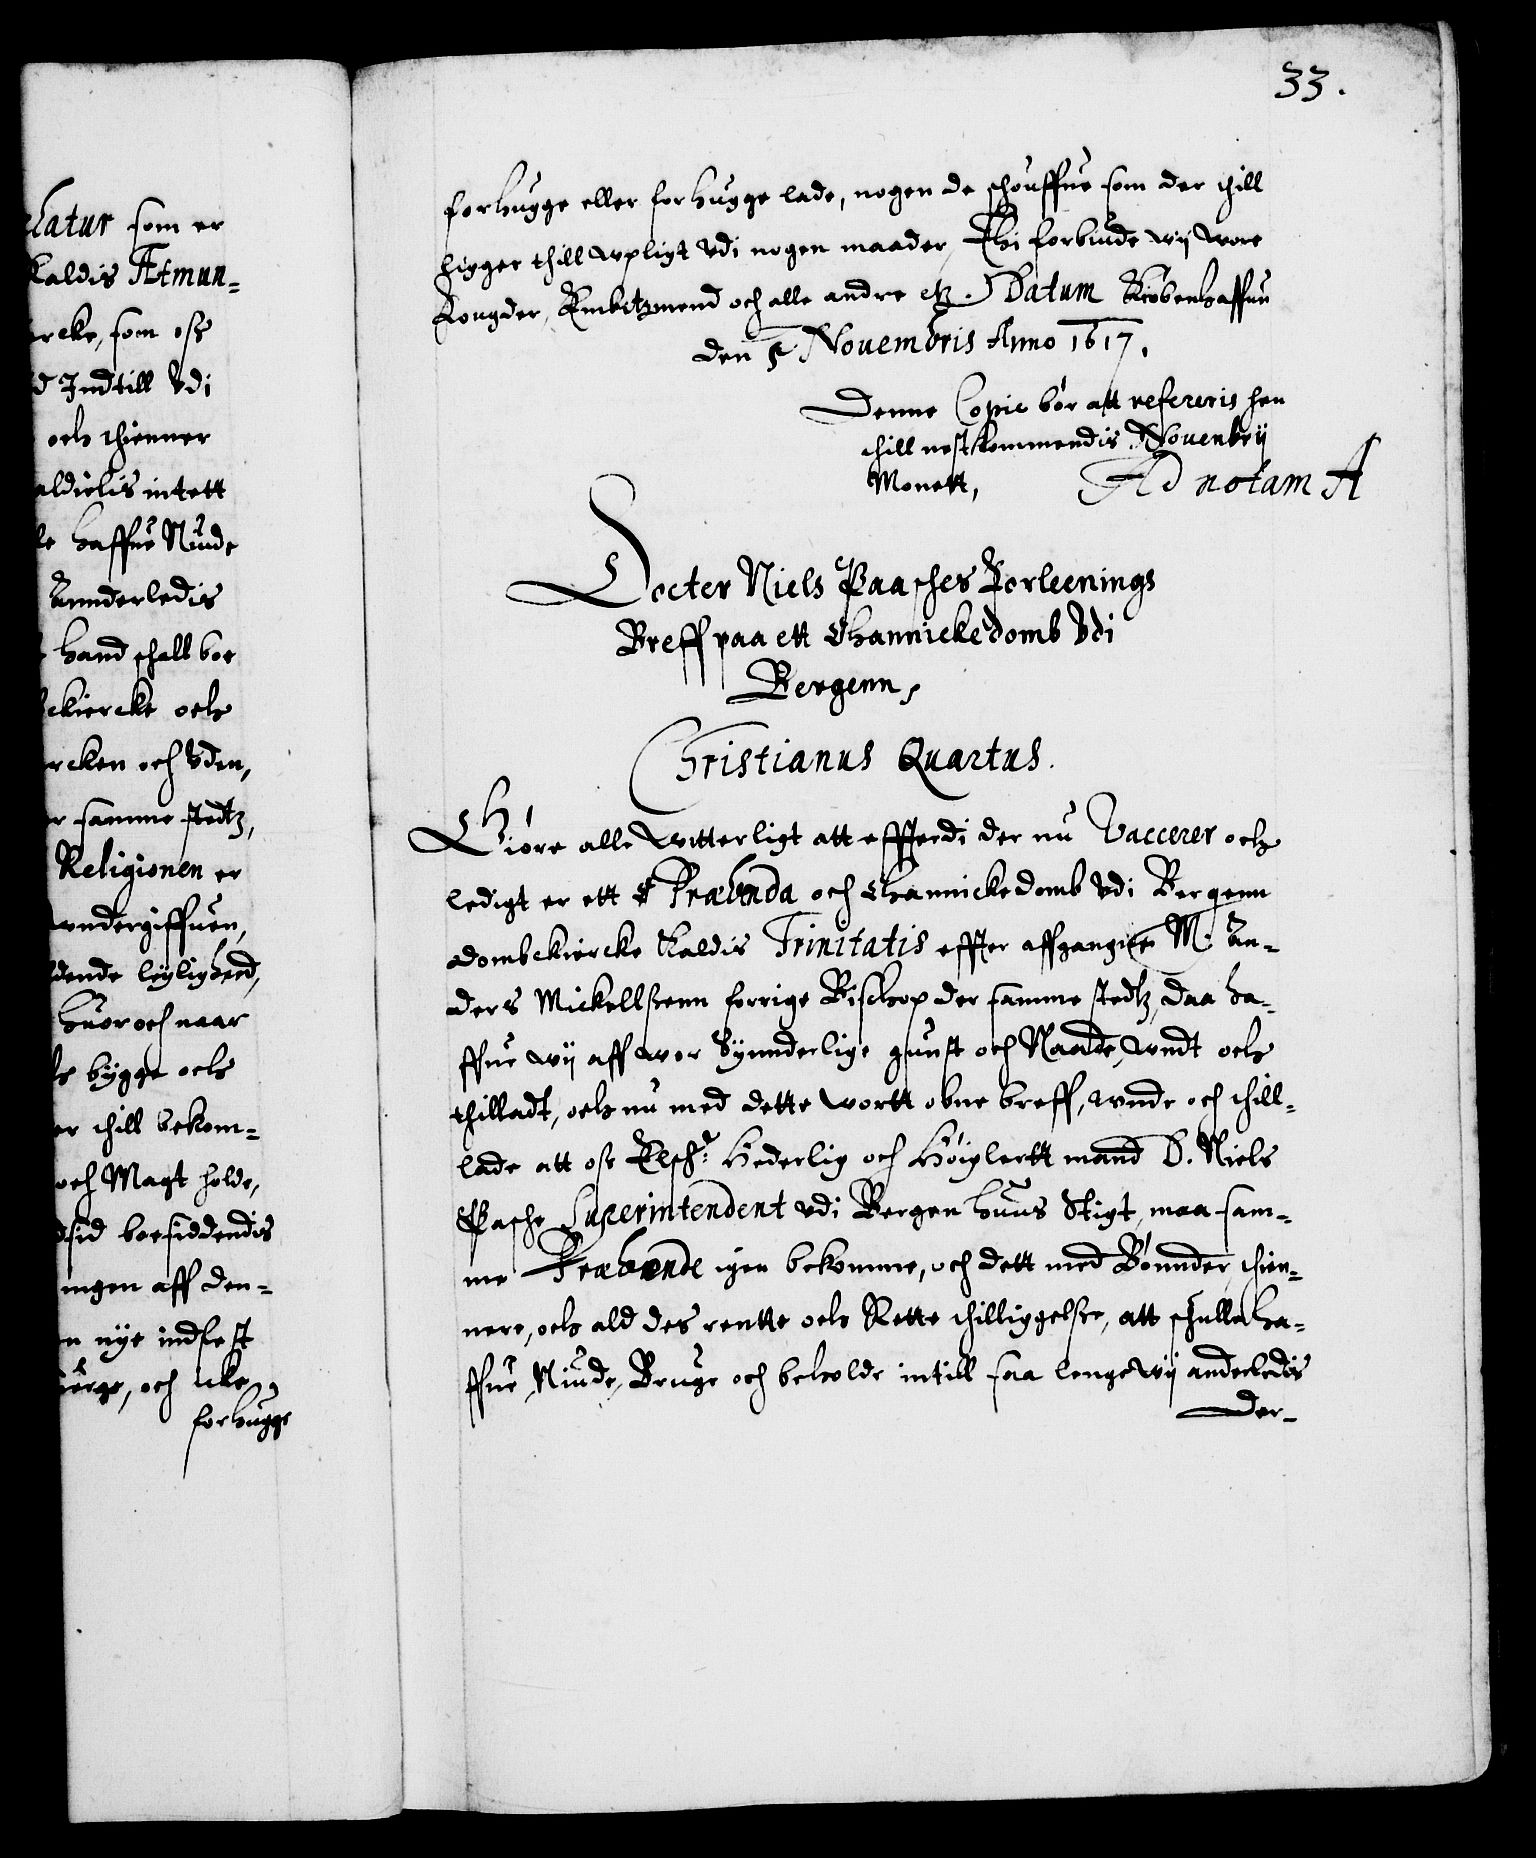 33.
latur som er
kaldis Atmun-
ercke, som oss
d Indtill Udi
och thienner
aldielis intett
le haffue Niude
Annderledis
hand schall boe
ckiercke och
ercken och Uden,
er samme stedtz,
Religionen er
wndergiffuen,
dende leyligheed,
huor och naar
bygge och
er thill bekom-
och Magt holde,
dsid boesiddendis
ingen aff den-
en nye indfest
och icke
forhugge
forhugge eller forhugge lade, nogen de schouffue som der thill
ligger thill wpligt Udi nogen maader, Thi forbiude wij wore
Fougder, Embitzmend och alle andre etz. Datum Kiøbenhaffnn
den 5 Nouembris Anno 1617.
Denne Copie bør att refereris hen
thill nestkommendis Nouenbrij
Monett, Ad notam A
Docter Niels Paasches Forleenings
Breff paa ett Channickedomb Udi
Bergenn,
Christianus Quartus.
Giøre alle witterligt att effterdi der nu Vaccerer och
ledigt er ett Præbenda och Channickedomb Udi Bergenn
dombckiercke kaldis Trinitatis effter affgangne M. An-
ders Mickellssenn forrige Bischop der samme stedtz, daa ha-
ffue wij aff wor Synnderlige gunst och Naade, wndt och
thilladt, och nu med dette wortt obne breff, wnde och thill-
lade att oss Elsch: Hederlig och Høiglertt mand D. Niels
Pasche Superintendent udi Bergenhuus Stigt, maa sam-
me Præbende igen bekomme, och dett med Bønnder, thien-
nere, och ald des rentte och Rette thilliggelsse, att schulle ha-
ffue, Niude, Bruge och beholde intill saa lenge Wij anderledis
der-